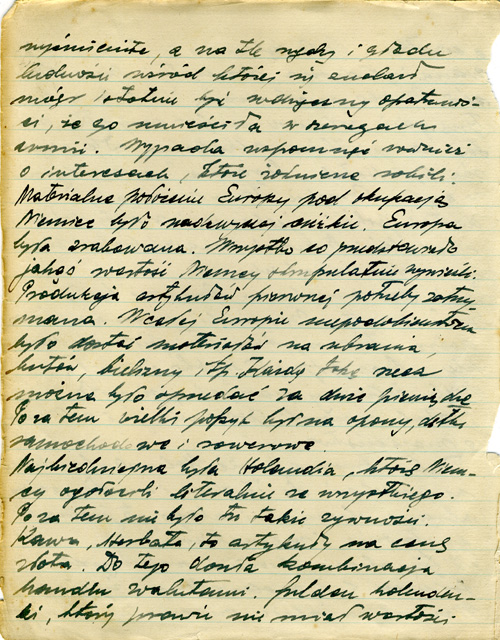 wyśmienite, a na tle nędzy i głodu
ludności wśród której się znalazł
mógł istotnie być wdzięczny opatrznoś-
ci, że go umieściła w szeregach
armii. Wypada wspomnieć również
o interesach, które żołnierze robili.
Materialne położenie Europy pod okupacją
Niemiec było nadzwyczaj ciężkie. Europa
była zrabowana. Wszystko co przedstawiało
jakąś wartość Niemcy skrupulatnie wynieśli.
Produkcja artykułów pierwszej potrzeby zatrzy-
mana. W całej Europie niepodobieństwem
było dostać materiałów na ubrania,
butów, bielizny itp. Każdą taką rzecz
można było sprzedać za duże pieniądze
Poza tem wielki popyt był na opony, dętki
samochodowe i rowerowe
Najbiedniejszą była Holandia, którą Niem-
cy ogołocili literalnie ze wszystkiego.
Poza tem nie było tu także żywności.
Kawa, herbata, to artykuły na cenę
złota. Do tego doszła kombinacja
handlu walutami. Gulden holender-
ski, który prawie nie miał wartości